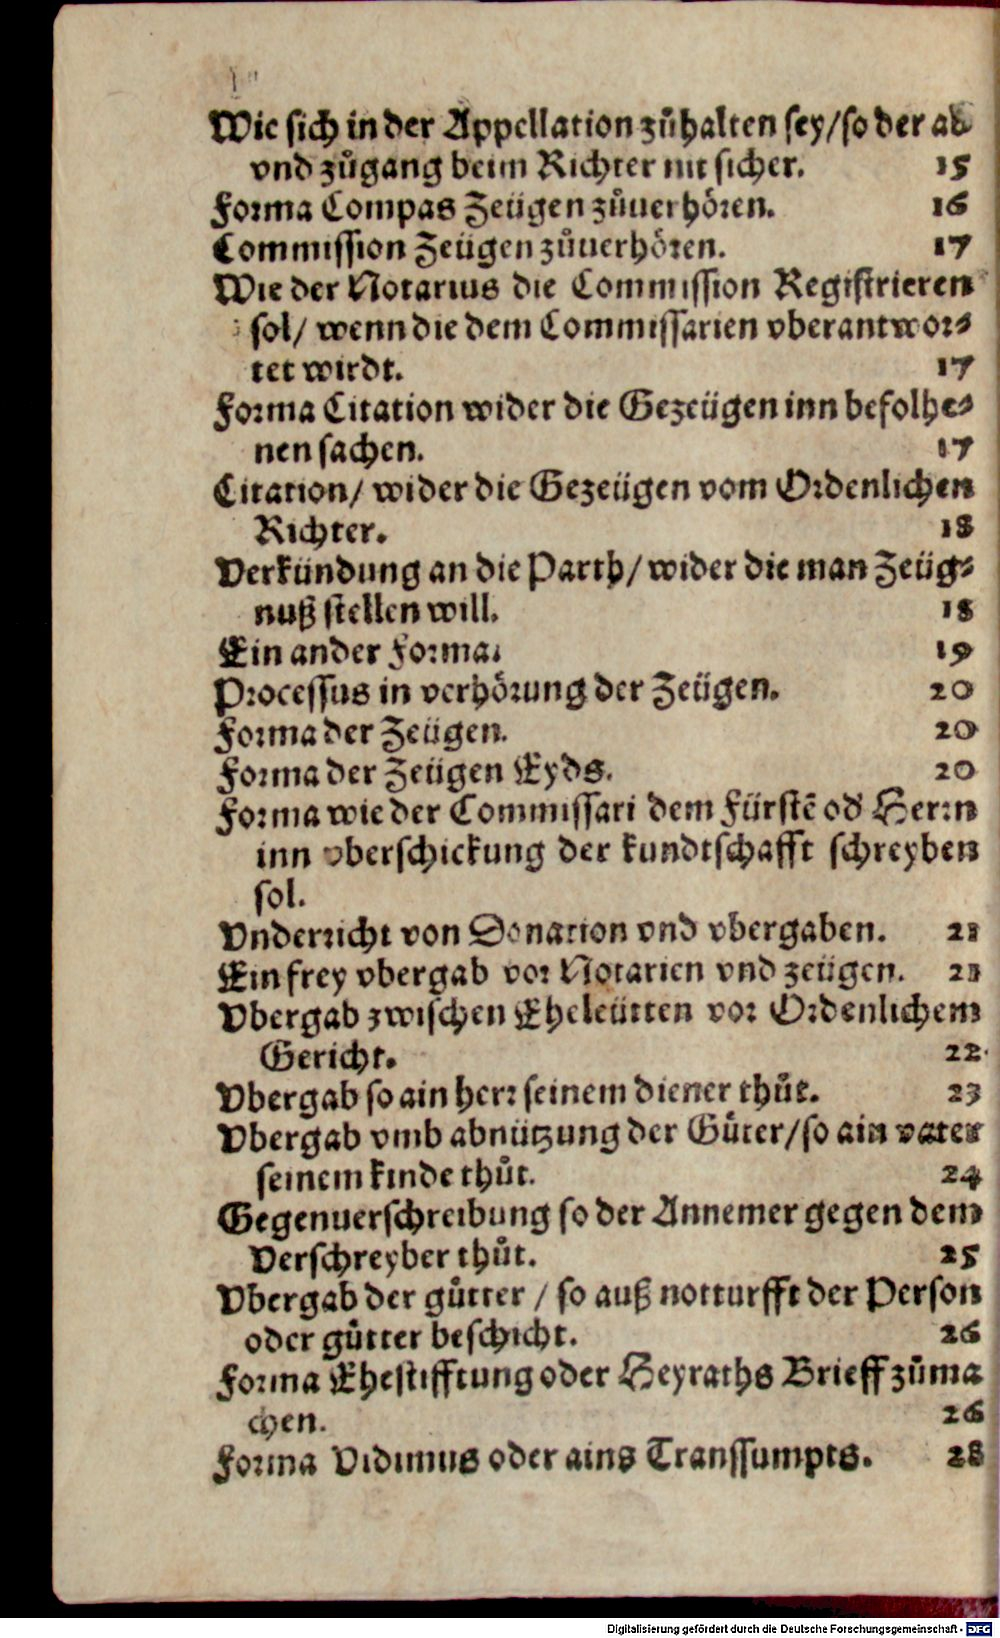 Wie sich in der Appellation zůhalten sey/so der ab
vnd zůgang beim Richter nit sicher. 15
Forma Compas Zeügen zůuerhören. 16
Commission Zeügen zůuerhören. 17
Wie der Notarius die Commission Registrieren
sol/ wenn die dem Commissarien vberantwor⸗
tet wirdt. 17
Forma Citation wider die Gezeügen inn befolhe⸗
nen sachen. 17
Citation/ wider die Gezeügen vom Ordenlichen
Richter. 18
Verkündung an die Parth/ wider die man Zeüg⸗
nuß stellen will. 18
Ein ander Forma. 19
Processus in verhörung der Zeügen. 20
Forma der Zeügen. 20
Forma der Zeügen Eyds. 20
Forma wie der Commissari dem Fürstē od' Herrn
inn vberschickung der kundtschafft schreyben
sol.
Vnderricht von Donation vnd vbergaben. 21
Ein frey vbergab vor Notarien vnd zeügen. 21
Vbergab zwischen Eheleütten vor Ordenlichem
Gericht. 22
Vbergab so ain herr seinem diener thůt. 23
Vbergab vmb abnützung der Güter/so ain vater
seinem kinde thůt. 24
Gegenuerschreibung so der Annemer gegen dem
Verschreyber thůt. 25
Vbergab der gütter / so auß notturfft der Person
oder gütter beschicht. 26
Forma Ehestifftung oder Heyraths Brieff zůma
chen. 26
Forma Vidimus oder ains Transsumpts. 28
Digitalisierung gefördert durch die Deutsche Forschungsgemeinschaft - DFG